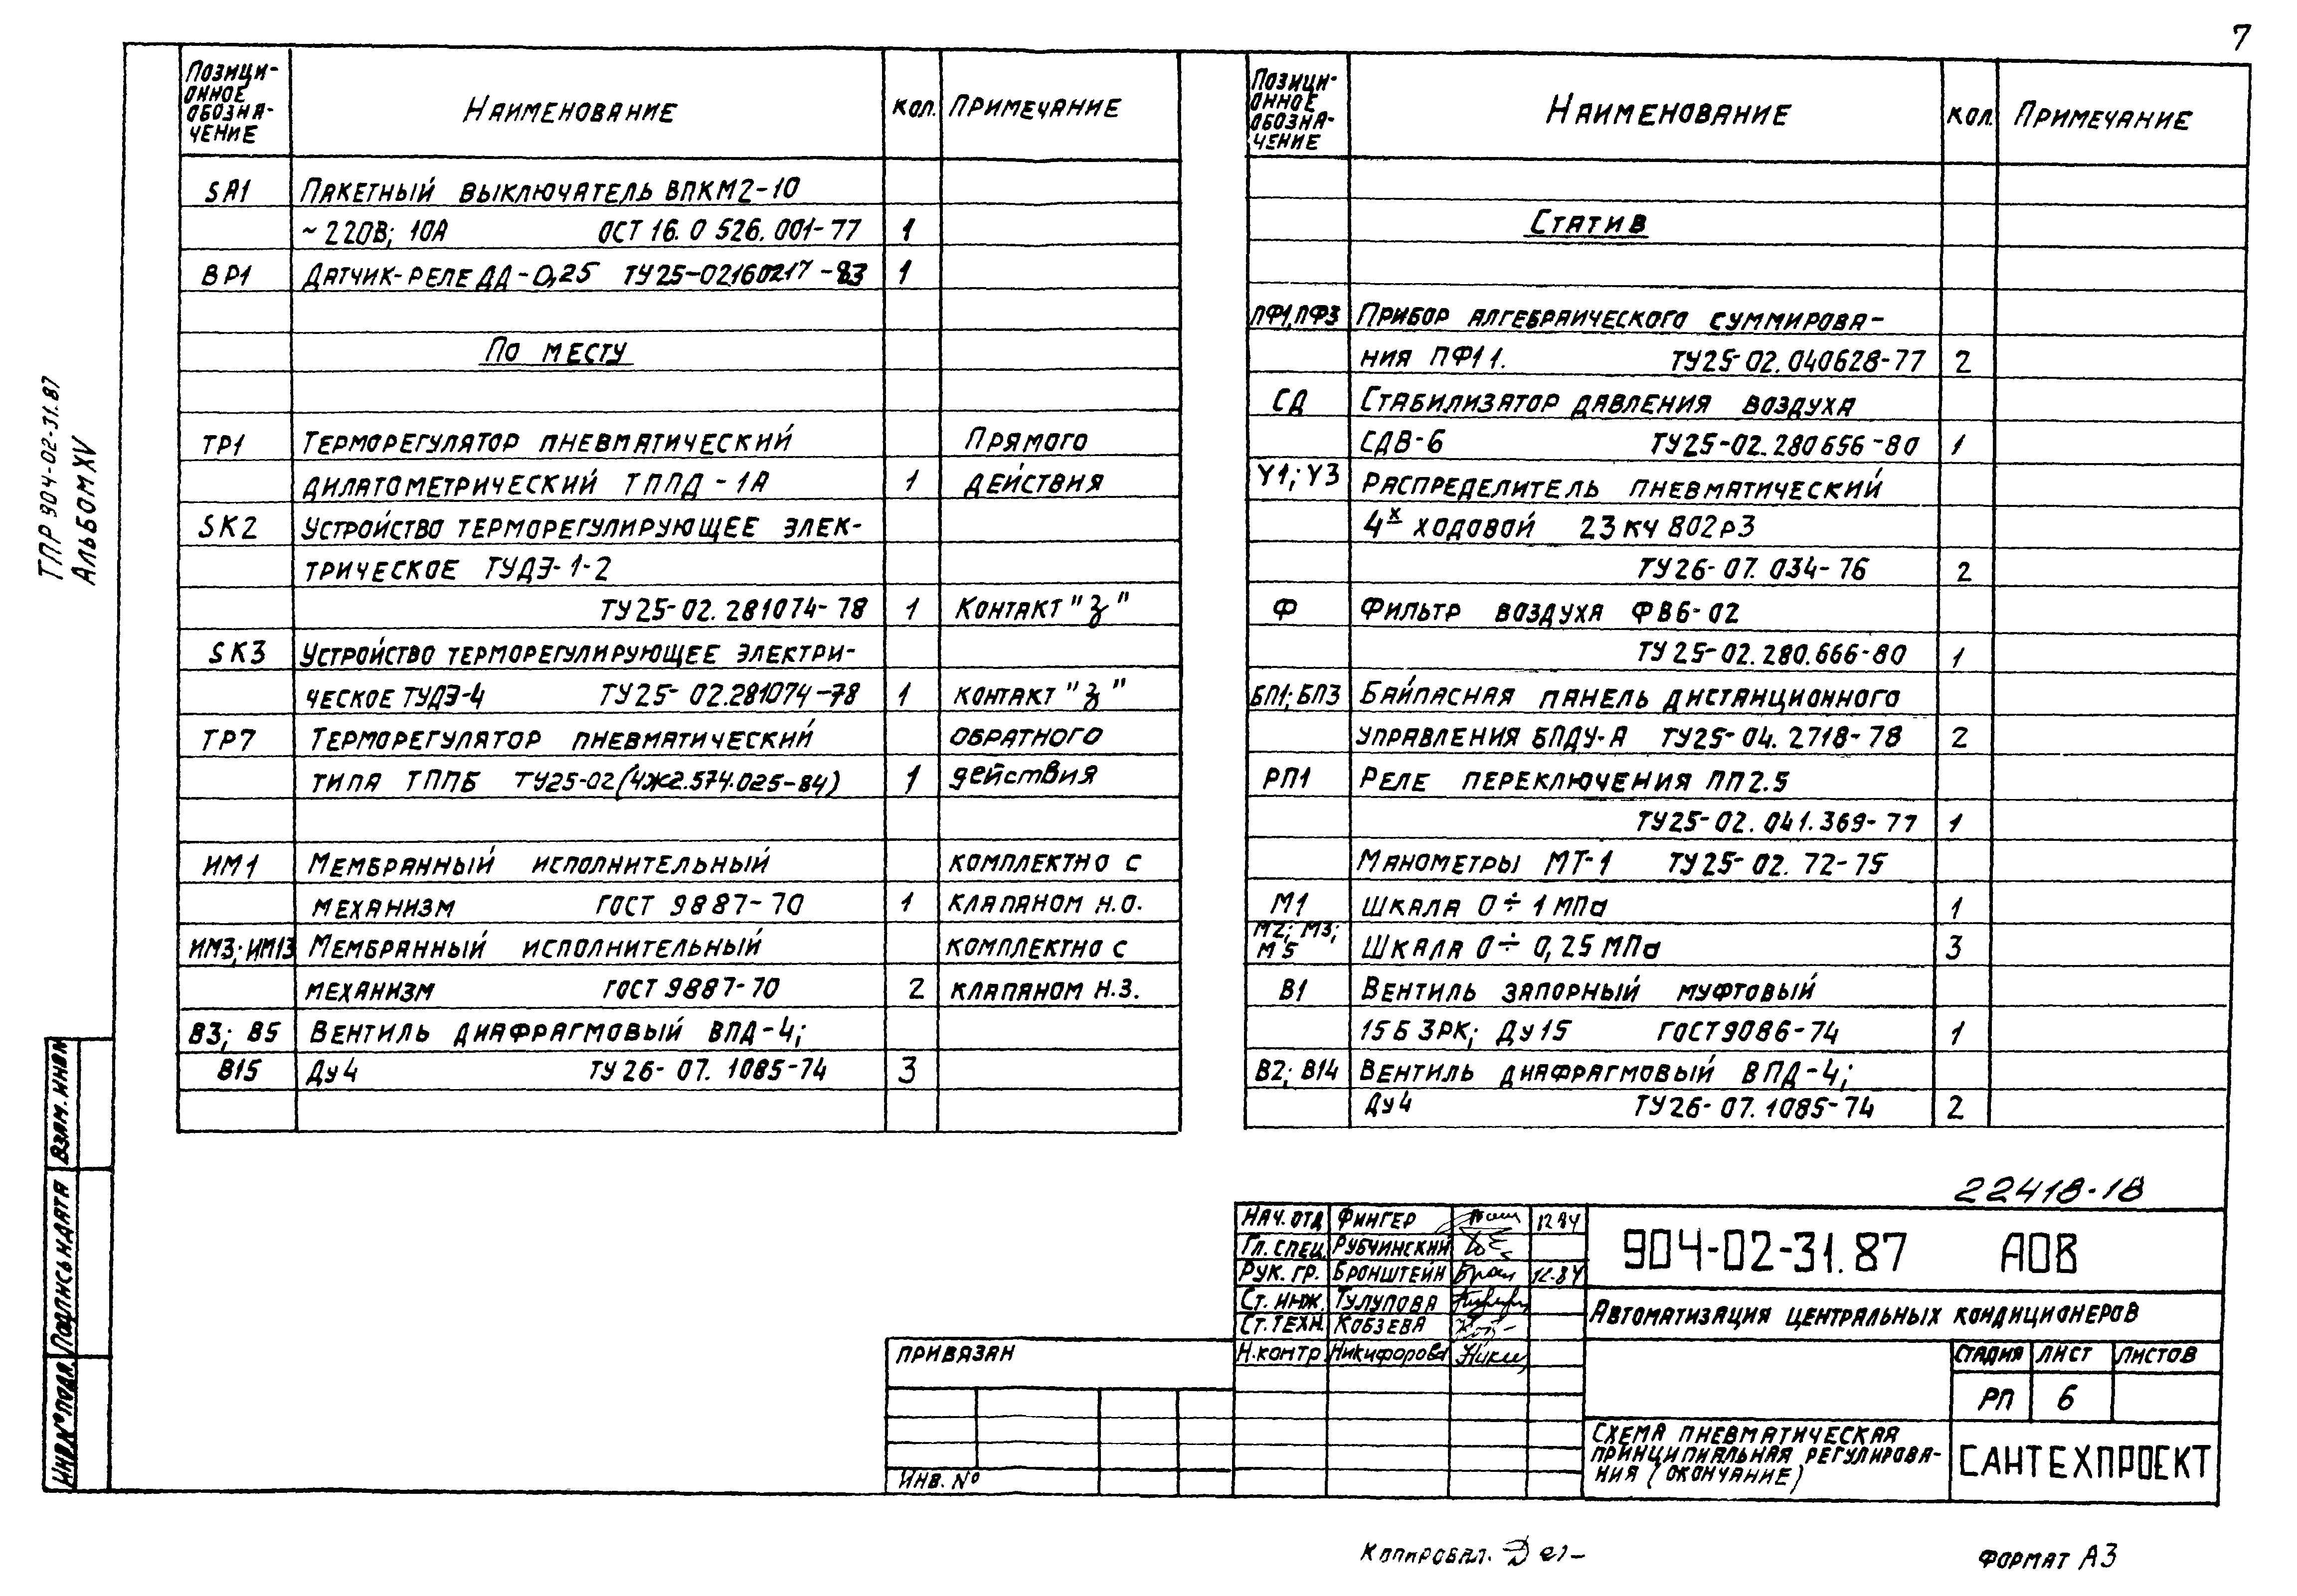 7
ТПР 904-02-31.87
Альбом XV
Позици-
онное
обозна-
чение
Наименование
Кол.
Примечание
SA1
Пакетный выключатель ВПКМ2-10
~220В; 10А ОСТ 16.0 526.001-77 1
ВР1 Датчик-реле ДД-0,25 ТУ25-02160217-83 1
По месту
ТР1 Терморегулятор пневматический Прямого
дилатометрический ТППД-1А 1 действия
SK2 Устройство терморегулирующее элек-
трическое ТУДЭ-1-2
ТУ25-02.281074-78 1 Контакт "з"
SK3 Устройство терморегулирующее электри-
ческое ТУДЭ-4 ТУ25-02.281074-78 1 контакт "з"
ТР7 Терморегулятор пневматический обратного
типа ТППБ ТУ25-02(4Ж2.574.025-84) 1 действия
ИМ1 Мембранный исполнительный комплектно с
механизм ГОСТ 9887-70 1 клапаном н.о.
ИМ3; ИМ13 Мембранный исполнительный комплектно с
механизм ГОСТ 9887-70 2 клапаном н.з.
В3; В5 Вентиль диафрагмовый ВПД-4;
В15 Ду4 ТУ26-07.1085-74 3
Позици-
онное
обозна-
чение
Наименование
Кол.
Примечание
Статив
ПФ1,ПФ3 Прибор алгебраического суммирова-
ния ПФ11. ТУ25-02.040628-77 2
СД Стабилизатор давления воздуха
СДВ-6 ТУ25-02.280656-80 1
Y1; Y3 Распределитель пневматический
4х ходовой 23кч802р3
ТУ26-07.034-76 2
Ф Фильтр воздуха ФВ6-02
ТУ25-02.280.666-80 1
БП1; БП3 Байпасная панель дистанционного
управления БПДУ-А ТУ25-04.2718-78 2
РП1 Реле переключения ПП2.5
ТУ25-02.041.369-77 1
Манометры МТ-1 ТУ25-02.72-75
М1 Шкала 0÷1 МПа 1
М2; М3;
М5 Шкала 0÷0,25 МПа 3
В1 Вентиль запорный муфтовый
15Б3РК; Ду15 ГОСТ9086-74 1
В2; В14 Вентиль диафрагмовый ВПД-4;
Ду4 ТУ26-07.1085-74 2
22418-18
Нач. отд Фингер 12.84
Гл. спец. Рубчинский
Рук. гр. Бронштейн 12.84
Ст. инж. Тулупова
Ст. техн. Кобзева
Н.контр Никифорова
904-02-31.87 АОВ
Автоматизация центральных кондиционеров
Стадия Лист Листов
РП 6
Схема пневматическая
принципиальная регулирова-
ния (окончание)
САНТЕХПРОЕКТ
Привязан
Инв. №
Взам. инв №
Подпись и дата
Инв. № подл.
Копировал.
Формат А3